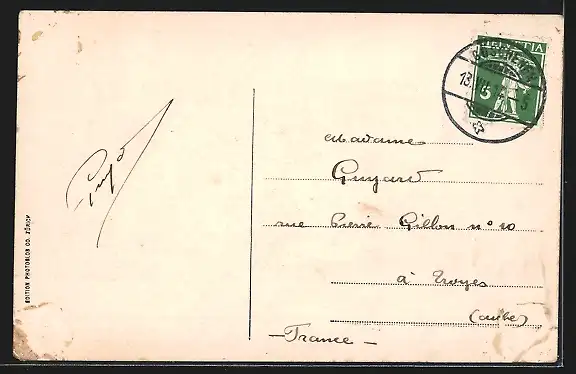 HELVETIA
5
13.VII.14
5
Madame
Guyard
rue Pierre Gillon n° 10
à Troyes
(aube)
- France -
EDITION PHOTOGLOB CO. ZÜRICH